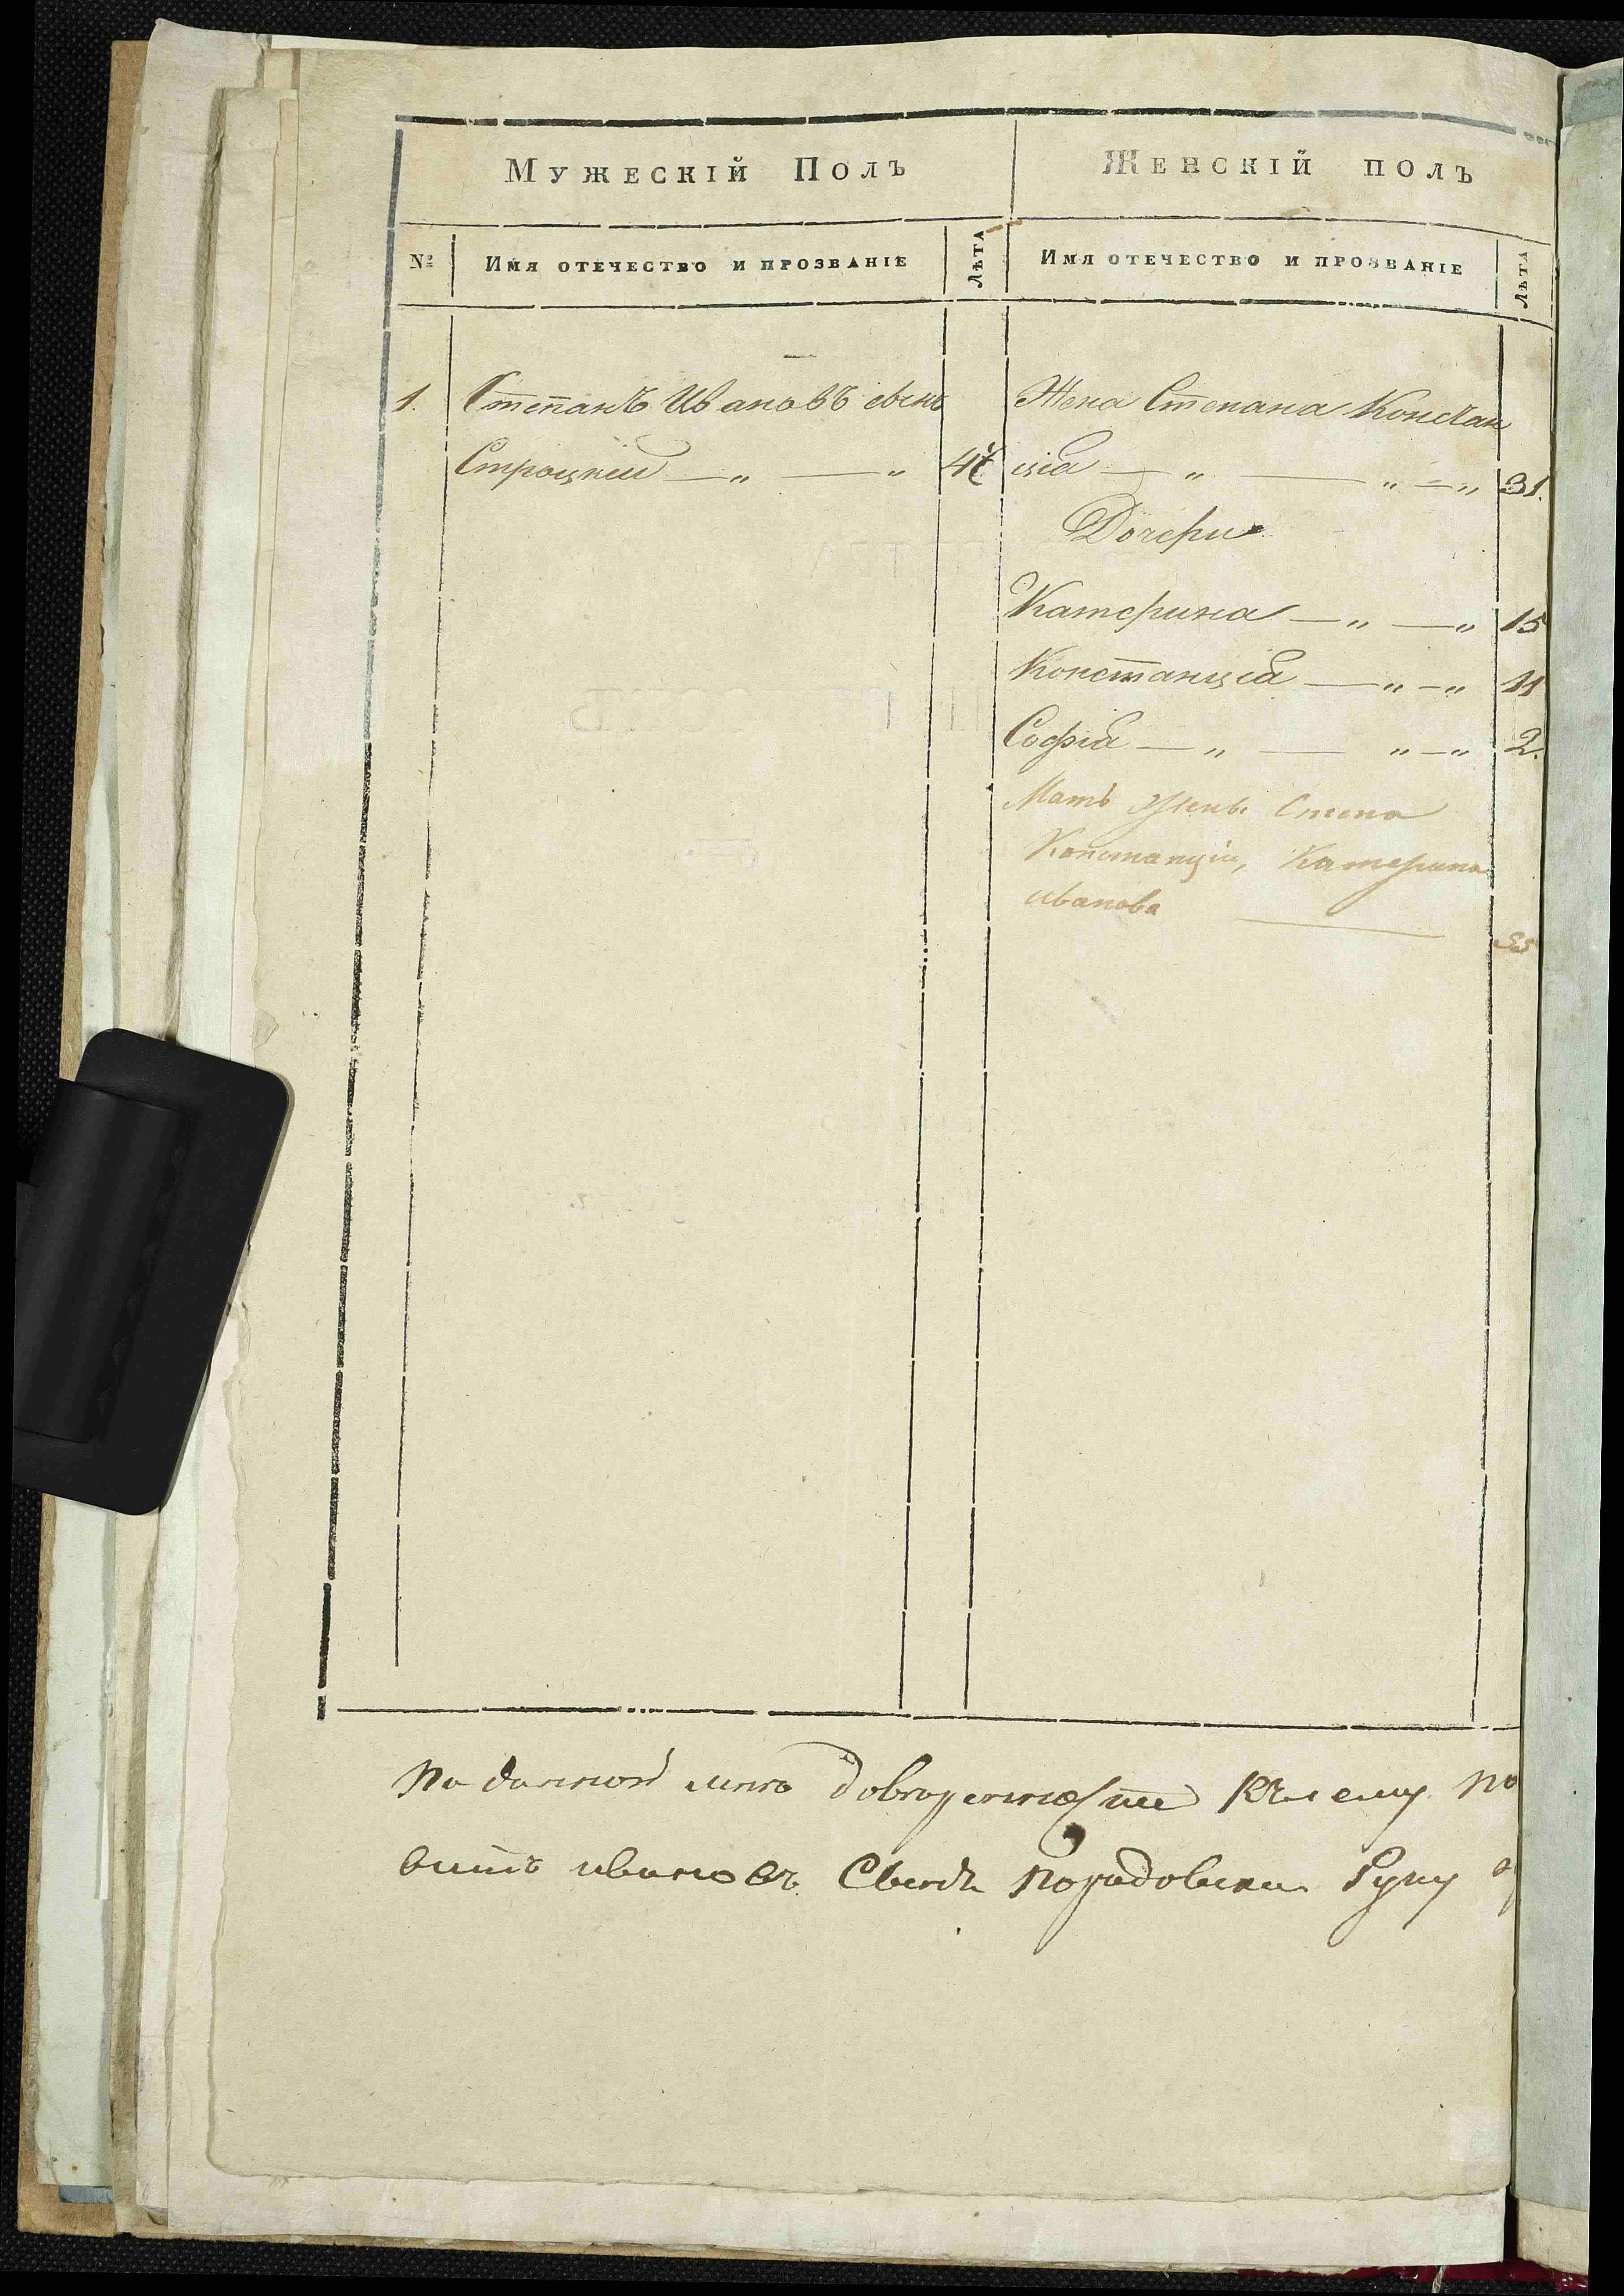 Мужескій Полъ
Женскій полъ
№
Имя отечество и прозваніе
Лѣта
Имя отечество и прозваніе
Лѣта
1. Степанъ Ивановъ сынъ
Строцкій — „ — „
Жена Степана Констан
ція — „ — „ — „ 31.
Дочери
Катерина — „ — „ 15
Констанція — „ — „ 11
Софія — „ — „ — „ 2.
Мать жены Степа
Констанціи, Катерина
Иванова
по данной мнѣ къ сему
Ивановъ сынъ руку